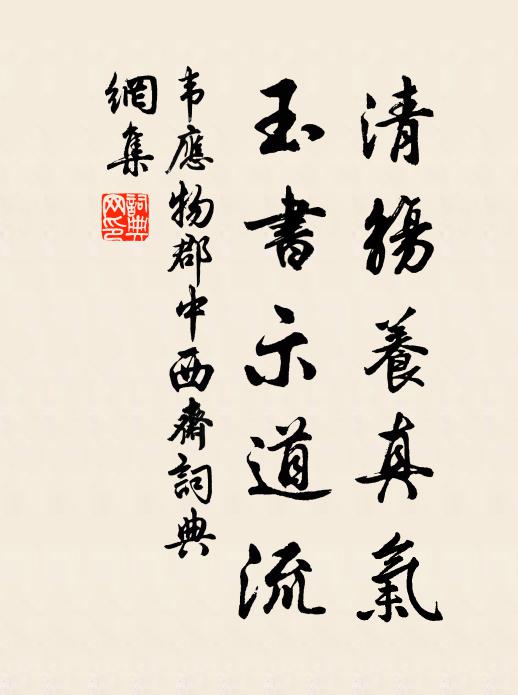 清觴養真氣
玉書示道流
韦應物郡中西齋詞典
網集
詞典
网印